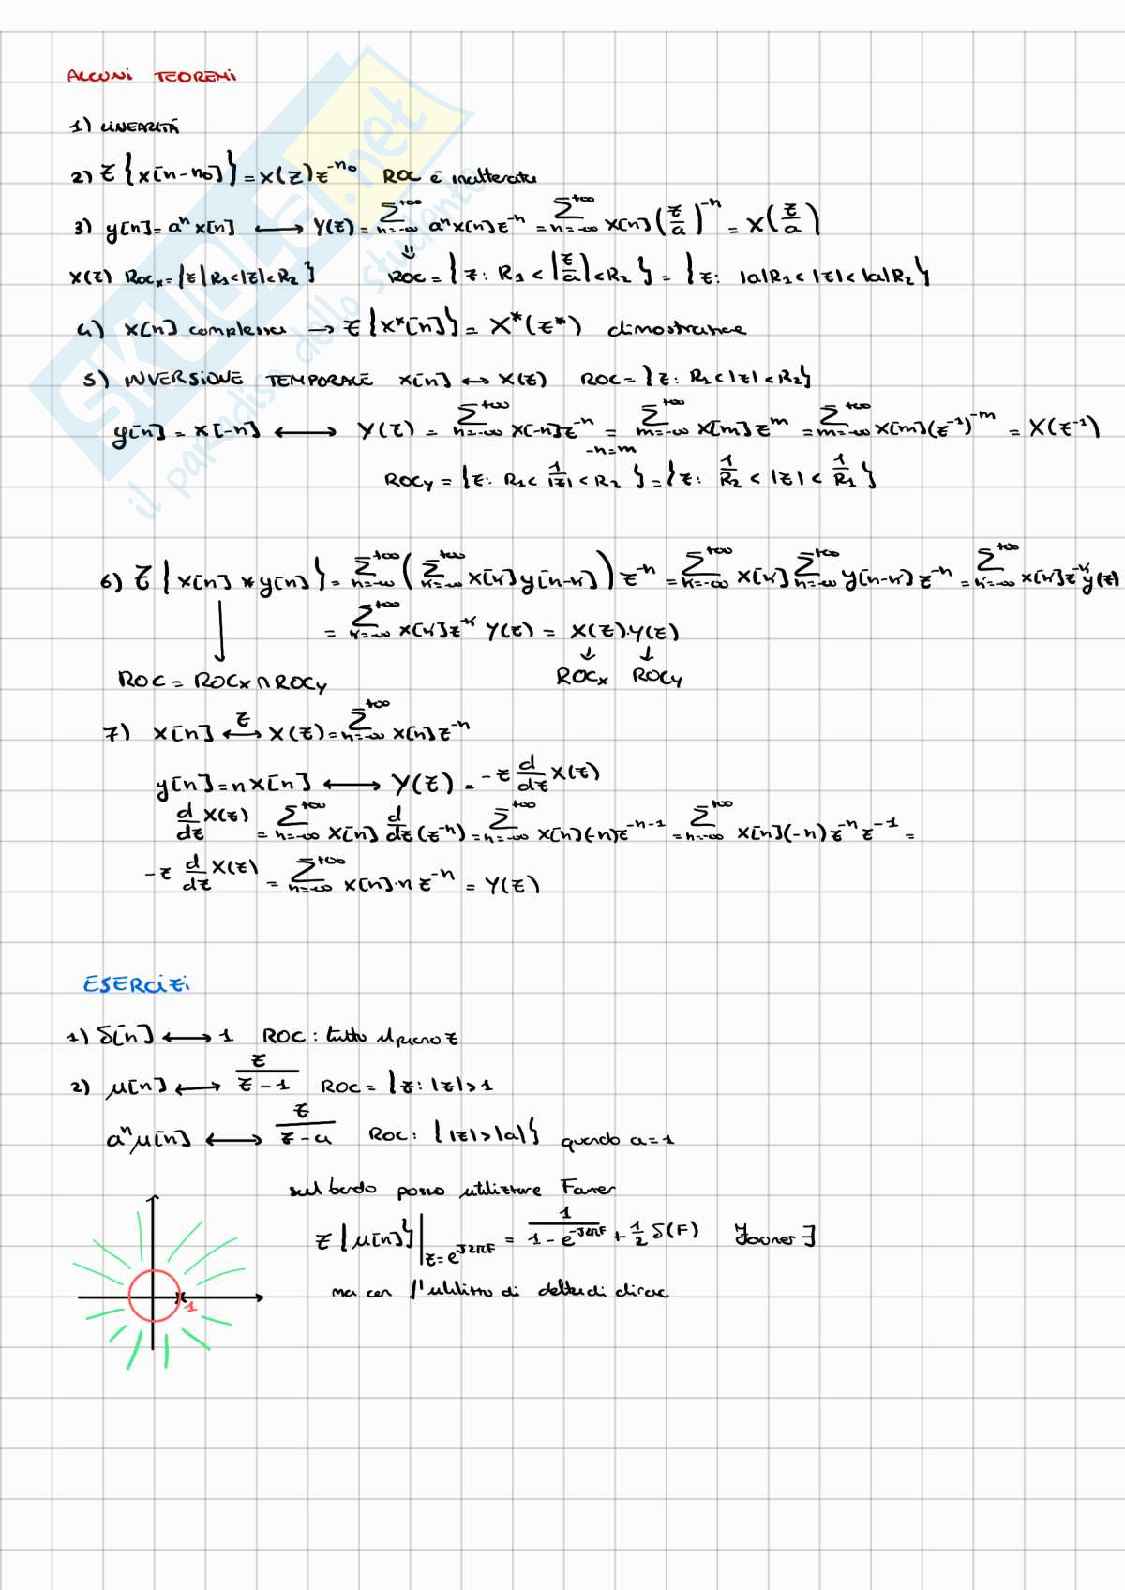 ALCUNI TEOREMI
1) LINEARITÀ
2) Z{x[n-n0]} = X(z)z^-n0 ROC è inalterata
3) y[n]=a^n x[n] ⟷ Y(z) = Σ_{n=-∞}^{+∞} a^n x[n] z^-n = Σ_{n=-∞}^{+∞} x[n] (z/a)^-n = X(z/a)
⇓
X(z) ROCx={z|R1<|z|<R2} ROC = {z: R1 < |z/a| < R2} = {z: |a|R1 < |z| < |a|R2}
4) x[n] complessa → Z{x*[n]} = X*(z*) dimostrare
5) INVERSIONE TEMPORALE x[n] ↔ X(z) ROC = {z: R1<|z|<R2}
y[n] = x[-n] ⟷ Y(z) = Σ_{n=-∞}^{+∞} x[-n]z^-n = Σ_{m=-∞}^{+∞} x[m] z^m = Σ_{m=-∞}^{+∞} x[m](z^-1)^-m = X(z^-1)
-n=m
ROCy = {z: R1 < 1/|z| < R2} = {z: 1/R2 < |z| < 1/R1}
6) Z{x[n] * y[n]} = Σ_{n=-∞}^{+∞} (Σ_{k=-∞}^{+∞} x[k]y[n-k]) z^-n = Σ_{k=-∞}^{+∞} x[k] Σ_{n=-∞}^{+∞} y[n-k] z^-n = Σ_{k=-∞}^{+∞} x[k]z^-k y(z)
= Σ_{k=-∞}^{+∞} x[k]z^-k Y(z) = X(z).Y(z)
ROC = ROCx ∩ ROCy ROCx ROCy
7) x[n] ⟷^Z X(z) = Σ_{n=-∞}^{+∞} x[n] z^-n
y[n]=nx[n] ⟷ Y(z) = -z d/dz X(z)
d/dz X(z) = Σ_{n=-∞}^{+∞} x[n] d/dz (z^-n) = Σ_{n=-∞}^{+∞} x[n](-n)z^-n-1 = Σ_{n=-∞}^{+∞} x[n](-n) z^-n z^-1 =
-z d/dz X(z) = Σ_{n=-∞}^{+∞} x[n]·n z^-n = Y(z)
ESERCIZI
1) δ[n] ⟷ 1 ROC: tutto il piano z
2) μ[n] ⟷ z/(z-1) ROC = {z: |z|>1
a^n μ[n] ⟷ z/(z-a) ROC: {|z|>|a|} quando a=1
sul bordo posso utilizzare Fourier
Z{μ[n]}|_{z=e^j2πF} = 1/(1-e^-j2πF) + 1/2 δ(F) [Fourier]
ma con l'utilizzo di delta di dirac
1
SKUOLA.net
il paradiso dello studente